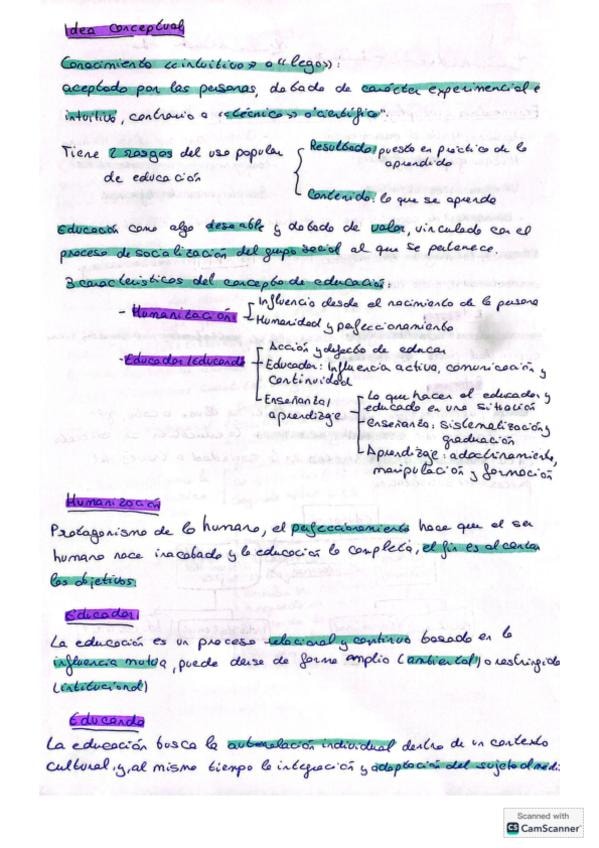 Idea conceptual
Conocimiento «intuitivo» o «lego»:
aceptado por las personas, dotado de carácter experimencial e
intuitivo, contrario a «técnico» o "científico".
Tiene 2 rasgos del uso popular
de educación
Resultado: puesta en práctica de lo
aprendido
Contenido: lo que se aprende
Educación como algo deseable y dotado de valor, vinculado con el
proceso de socialización del grupo social al que se pertenece.
3 características del concepto de educación:
- Humanización
Influencia desde el nacimiento de la persona
Humanidad y perfeccionamiento
- Educador/educando
Acción y defecto de educar
Educador: Influencia activa, comunicación y
continuidad
Enseñanza/
aprendizaje
Lo que hacer el educador y
educado en una situación
Enseñanza: sistematización y
graduación
Aprendizaje: adoctrinamiento,
manipulación y formación
Humanización
Protagonismo de lo humano, el perfeccionamiento hace que el ser
humano nace inacabado y la educación lo completa, el fin es alcanzar
los objetivos.
Educador
La educación es un proceso relacional y continuo basado en la
influencia mutua, puede darse de forma amplia (ambiental) o restringida
(institucional)
Educando
La educación busca la individual dentro de un contexto
cultural, y, al mismo tiempo la integración y adaptación del sujeto al
Scanned with
CS CamScanner